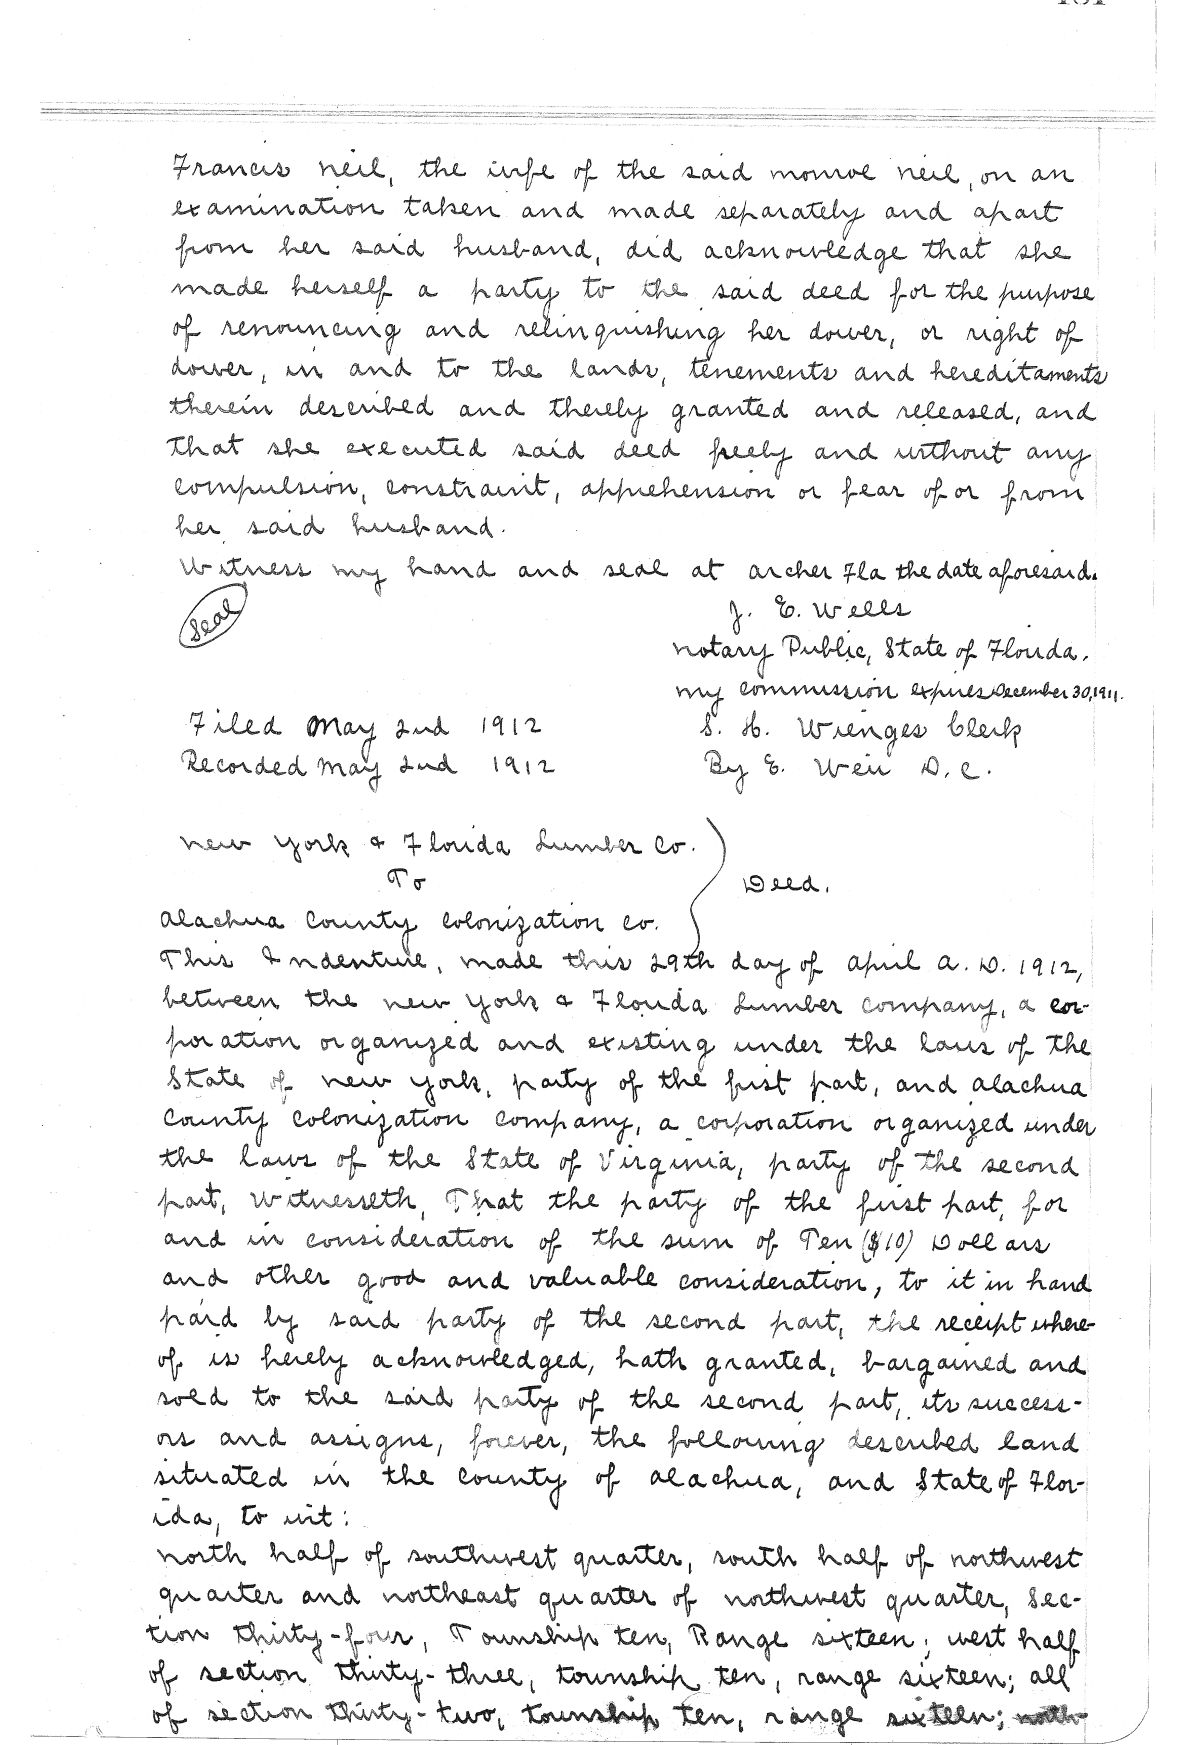 Francis Neil, the wife of the said Monroe Neil, on an
examination taken and made separately and apart
from her said husband, did acknowledge that she
made herself a party to the said deed for the purpose
of renouncing and relinquishing her dower, or right of
dower, in and to the lands, tenements and hereditaments
therein described and thereby granted and released, and
that she executed said deed freely and without any
compulsion, constraint, apprehension or fear of or from
her said husband.
Witness my hand and seal at Archer Fla the date aforesaid.
Seal
J. E. Wells
Notary Public, State of Florida.
My commission expires December 30, 1911.
Filed May 2nd 1912 S. H. Wienges Clerk
Recorded May 2nd 1912 By E. Weir D.C.
New York & Florida Lumber Co.
To Deed.
Alachua County Colonization Co.
This Indenture, made this 29th day of April A.D. 1912,
between the New York & Florida Lumber Company, a cor-
poration organized and existing under the laws of the
State of New York, party of the first part, and Alachua
County Colonization Company, a corporation organized under
the laws of the State of Virginia, party of the second
part, Witnesseth, That the party of the first part, for
and in consideration of the sum of Ten ($10) Dollars
and other good and valuable consideration, to it in hand
paid by said party of the second part, the receipt where-
of is hereby acknowledged, hath granted, bargained and
sold to the said party of the second part, its success-
ors and assigns, forever, the following described land
situated in the County of Alachua, and State of Flor-
ida, to wit:
North half of southwest quarter, south half of northwest
quarter and northeast quarter of northwest quarter, Sec-
tion thirty-four, Township ten, Range sixteen; west half
of section thirty-three, township ten, range sixteen; all
of section thirty-two, township ten, range sixteen; north-